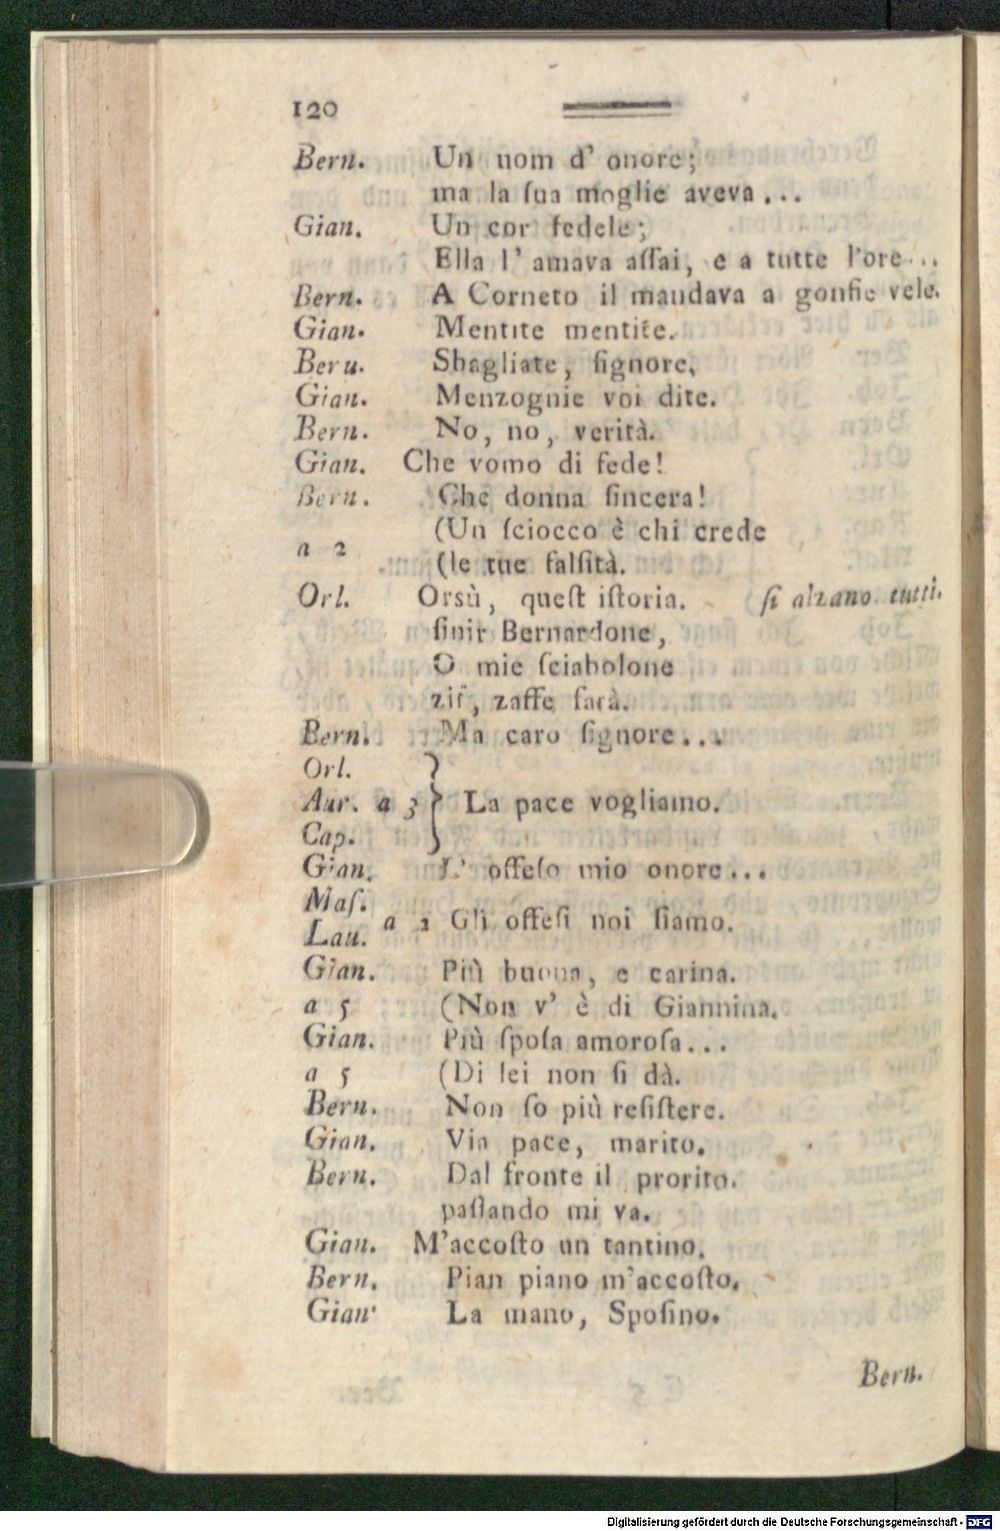 120
Bern. Un uom d' onore;
ma la ſua moglie aveva...
Gian. Un cor fedele;
Ella l' amava aſſai, e a tutte l'ore...
Bern. A Corneto il mandava a gonfie vele.
Gian. Mentite mentite.
Beru. Sbagliate, ſignore,
Gian. Menzognie voi dite.
Bern. No, no, verità.
Gian. Che vomo di fede!
Bern. Che donna ſincera!
a 2 (Un ſciocco è chi crede
(le tue falſità.
Orl. Orsù, queſt iſtoria. ſi alzano tutti.
finir Bernardone,
O mie ſciabolone
zif, zaffe farà.
Bern. Ma caro ſignore...
Orl.
Aur. a 3 } La pace vogliamo.
Cap.
Gian. L' offeſo mio onore...
Maſ.
a 2 Gli offeſi noi ſiamo.
Lau.
Gian. Più buona, e carina.
a 5 (Non v' è di Giannina.
Gian. Più ſpoſa amoroſa...
a 5 (Di lei non ſi dà.
Bern. Non ſo più reſiſtere.
Gian. Via pace, marito.
Bern. Dal fronte il prorito.
paſſando mi va.
Gian. M'accoſto un tantino.
Bern. Pian piano m'accoſto.
Gian. La mano, Spoſino.
Bern.
Digitalisierung gefördert durch die Deutsche Forschungsgemeinschaft - DFG